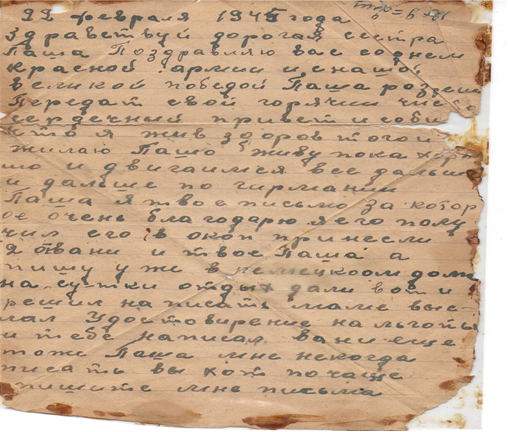 22 февраля 1945 года
здравствуй дорогая сестра
Паша Поздравляю вас соднем
красной армии и снашой
великой победой Паша
Передат свой горячий
сердечный привет и
што я жив здоров тогои
жилаю Пашо живу пока
шо и двигаимся все дальше
и дальше по гирмании
Паша я твое письмо за котор
ое очень благодарю я его полу
чил его в окоп принесли
я Вани и твое Паша а
пишу уже в немецкоом доме
на сутки отдых дали вот и
решил написать маме выс
лал Удостовирение на льготы
и тебе написал Вани еще
тоже Паша мне некогда
писать вы хот почаще
пишите мнь письма